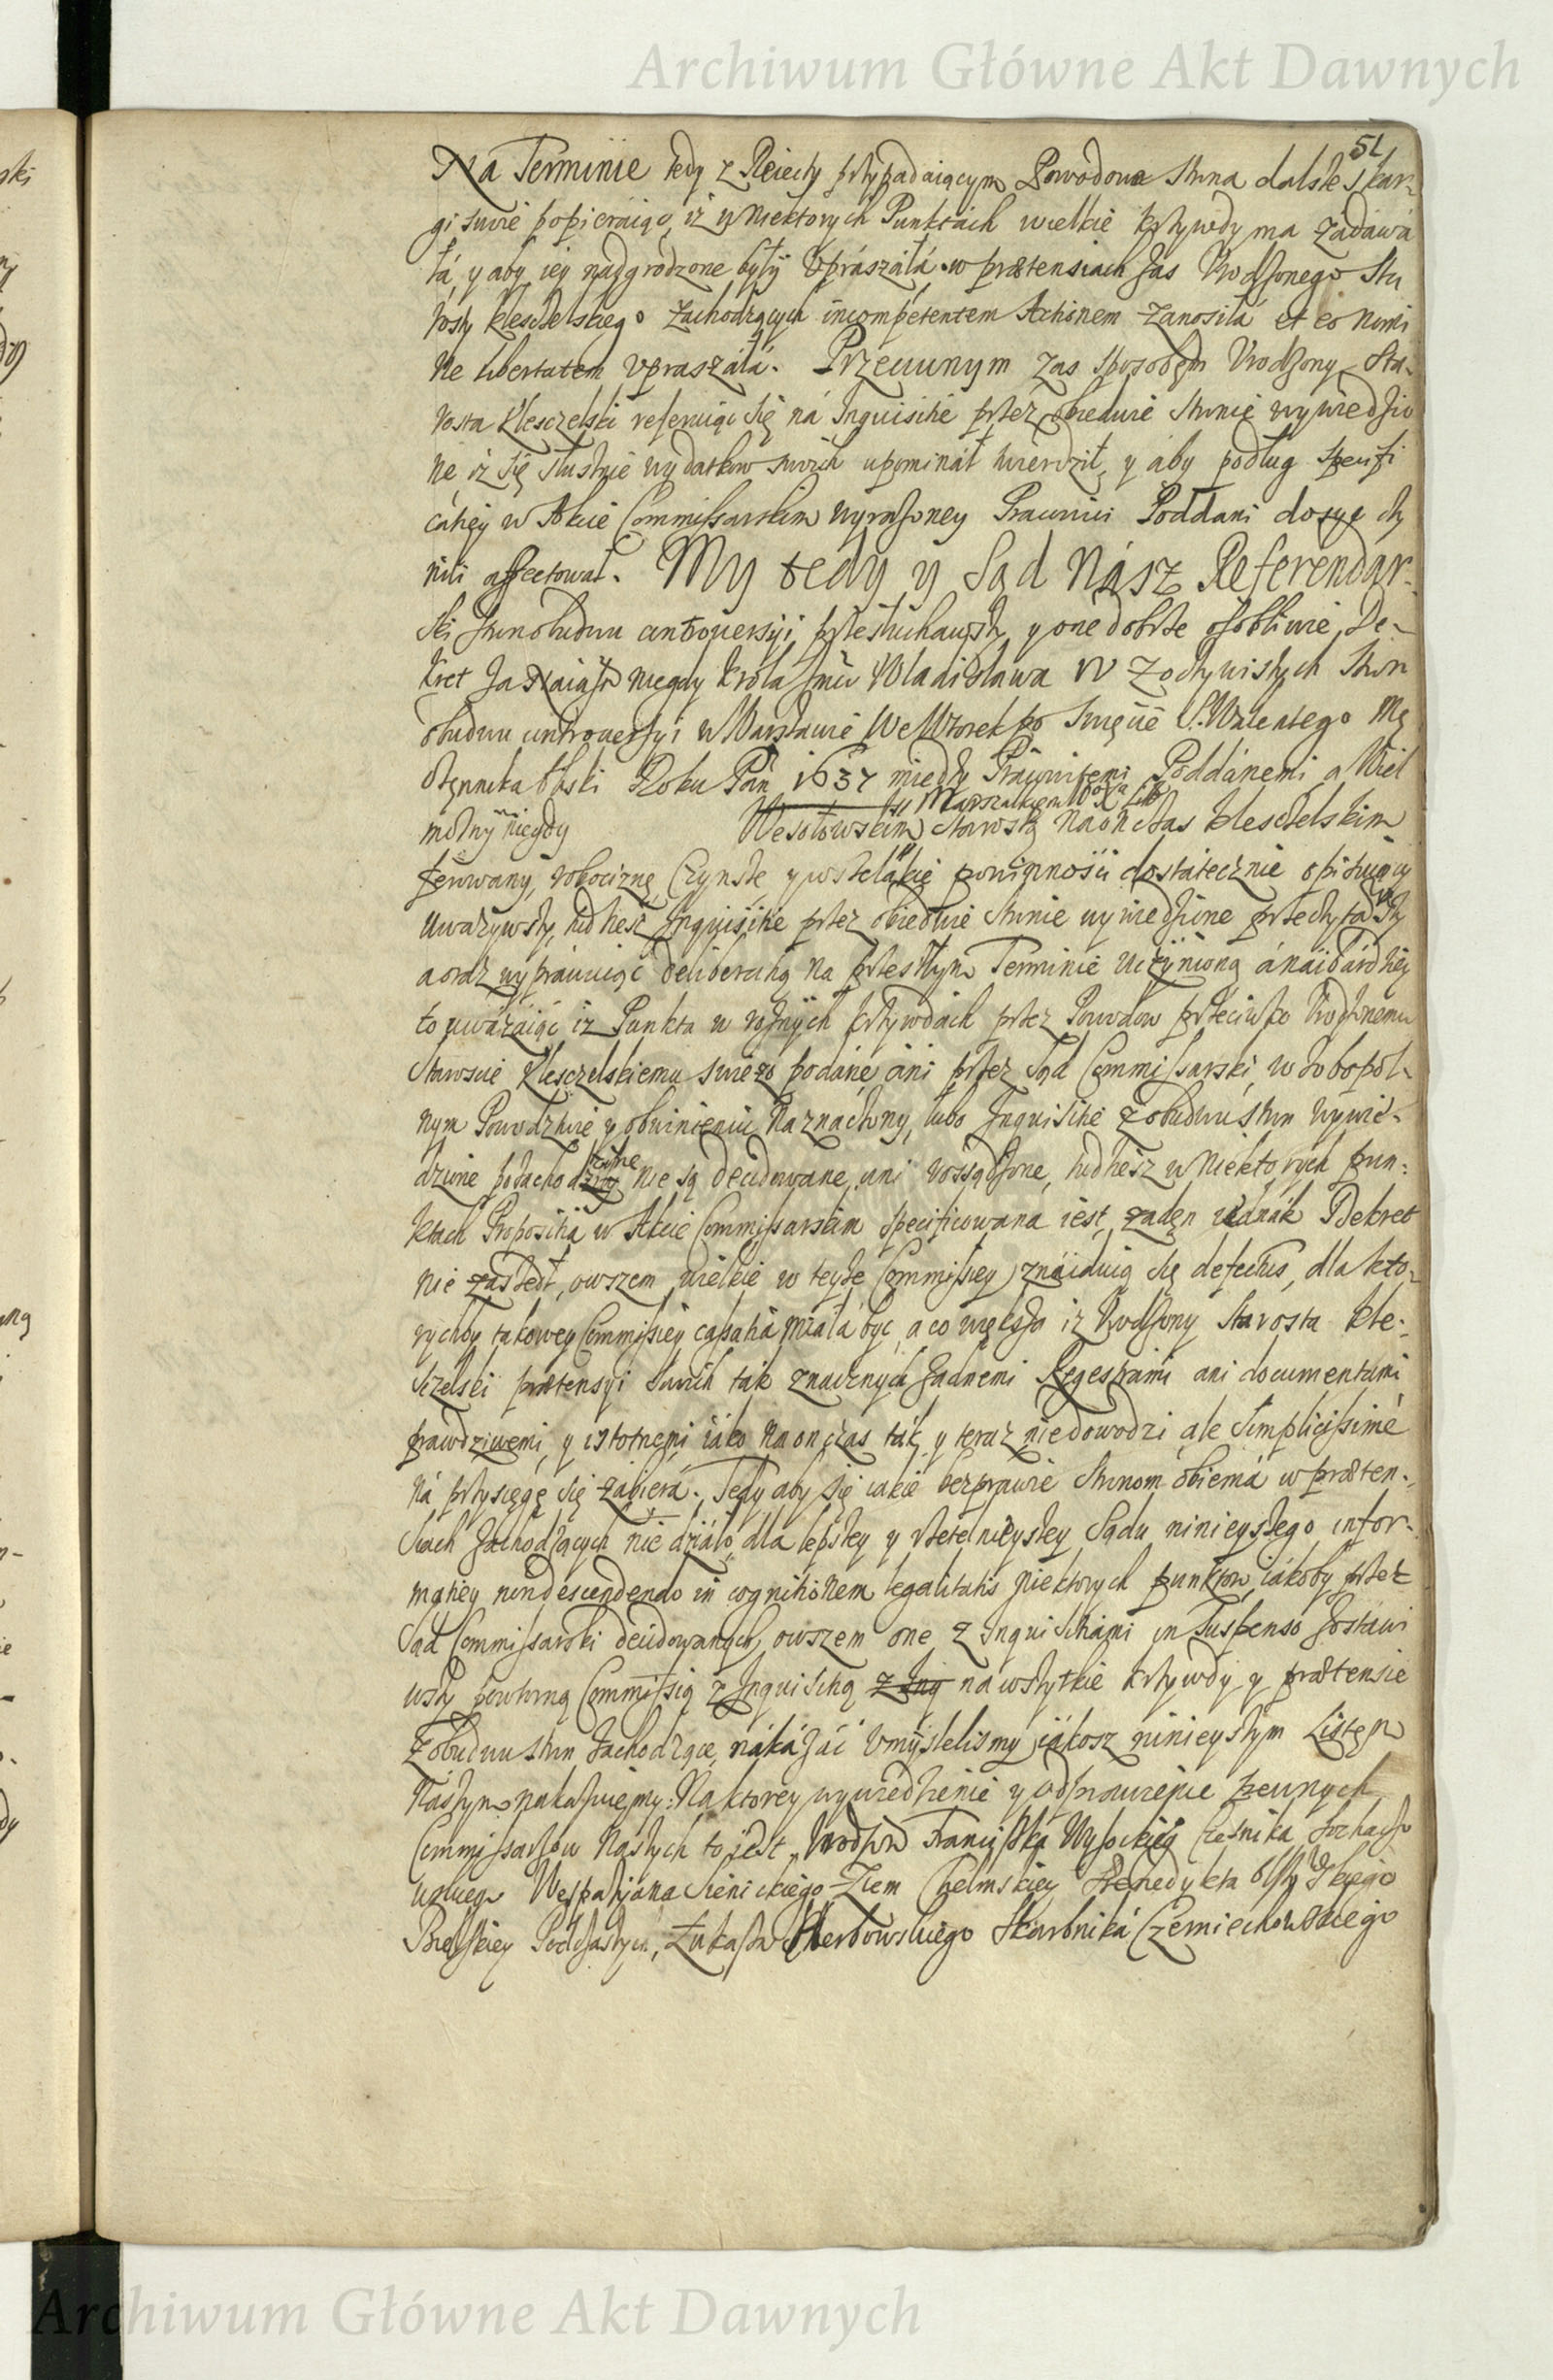 Archiwum Główne Akt Dawnych
51
Na Terminie tedy z Rejecty przypadaiącym Powodowa Strona dalsze Skar-
gi swoie popieraiąc, iż w niektorych Punktach wielkie krzywdy ma zadawa
ła, y aby iey nadgrodzone były vpraszała. w praetensiach zas Vrodzonego Sta
rosty Klesczelskiego zachodzących incompetentem Actionem zanosiła et eo nomi
ne libertatem vpraszała. Przeciwnym zas sposobem Vrodzony Sta-
rosta Klesczelski referuiąc się ná Inquisitie przez obiedwie Stronie wywiedzio
ne iż się słusznie wydatkow swoich upominał twierdził, y aby podług specifi
catiey w Akcie Commissarskim wyrazoney Pracowici Poddani dosyc czy
nili affectował. My tedy y Sąd Nász Referendar-
ski Stron obudwu controversyi przesłuchawszy, y one dobrze osobliwie De-
kret Ja Naiaśn niegdy Krola Jmci Władisława IV z oczywistych Stron
obudwu controversyi w Warszawie We Wtorek po Święcie S. Walentego Mę
czennika Roku Pan 1637 miedzy Pracowitemi Poddánemi, a Wiel
Marszałkiem W X Litt
możny niegdy Wesołowskim Starostą na on czas Klesczelskim
ferowany, robociznę, Czynsze, y wszelákie powinnosci dostatecznie opisuiący
uwazywszy, tudziesz Inquisitie przez obiedwie Stronie wywiedzione przeczytawszy
a oraz wyprawuiąc deliberatią na przeszłym Terminie uczynioną á naibárdziey
to uwázaiąc iz Punkta w roznych krzywdach przez Powodow przeciwko Vrodzonemu
Staroscie Klesczelskiemu swiezo podáne áni przez Sąd Commissarski, w obopol-
nym Powodztwie y obwinieniu náznaczony, lubo Inquisitie z obudwu stron wywie-
dzione pozachodziły nie są decidowane, ani rossądzone, tudziesz w niektorych pun-
ktach Propositia w Akcie Commissarskim specificowana iest, zaden iednák Dekret
nie zaszedł, owszem wielkie w teyze Commissiey znáiduią się defectus, dla kto-
rychby takowey Commissiey cassatia miałá być, a co większa iz Vrodzony Starosta Kle-
sczelski praetensyi swoich tak znacznych zadnemi Regestrami ani documentami
prawdziwemi, y istotnemi iáko na on czas ták y teraz niedowodzi ale simplicissimé
ná przysięgę się zábiera. Tedy aby się iakie bezprawie Stronom obiemá w praeten-
siach zachodzących nie działo, dla lepszey y rzetelnieyszey Sądu ninieyszego infor-
matiey non descendendo in cognitionem legalitatis niektorych punktow iákoby przez
Sąd Commissarski decidowanych, owszem one z Inquisitiami in Suspenso zostawi
wszy powtorną Commissią z Inquisitią z Inq na wszytkie krzywdy y praetensie
z obudwu stron zachodzące, nákázáć vmyslelismy iákosz ninieyszym Listem
Naszym nakazuiemy. Na ktorey wywiedzienie y odprawienie pewnych
Commissarzow Naszych to iest, Vrodzon Franciszka Wysockieg Czesnika Sochaczo
wskiego Wespazjana Sienickiego Ziem Chełmskiey Benedykta
Bielskiey Podczaszych, Łukasza Skarbniká Czerniechowskiego
Archiwum Główne Akt Dawnych